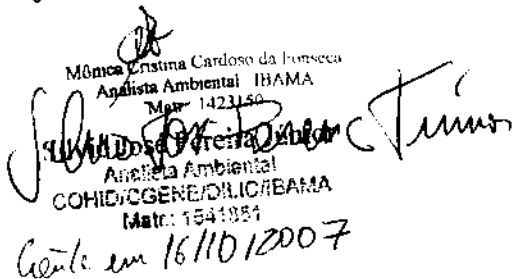 Mônica Cristina Cardoso da Fonseca
Analista Ambiental IBAMA
Matr. 1423150
Silvio José Pereira Júnior
Analista Ambiental
COHID/CGENE/DILIC/IBAMA
Matr.: 1541851
em 16/10/2007